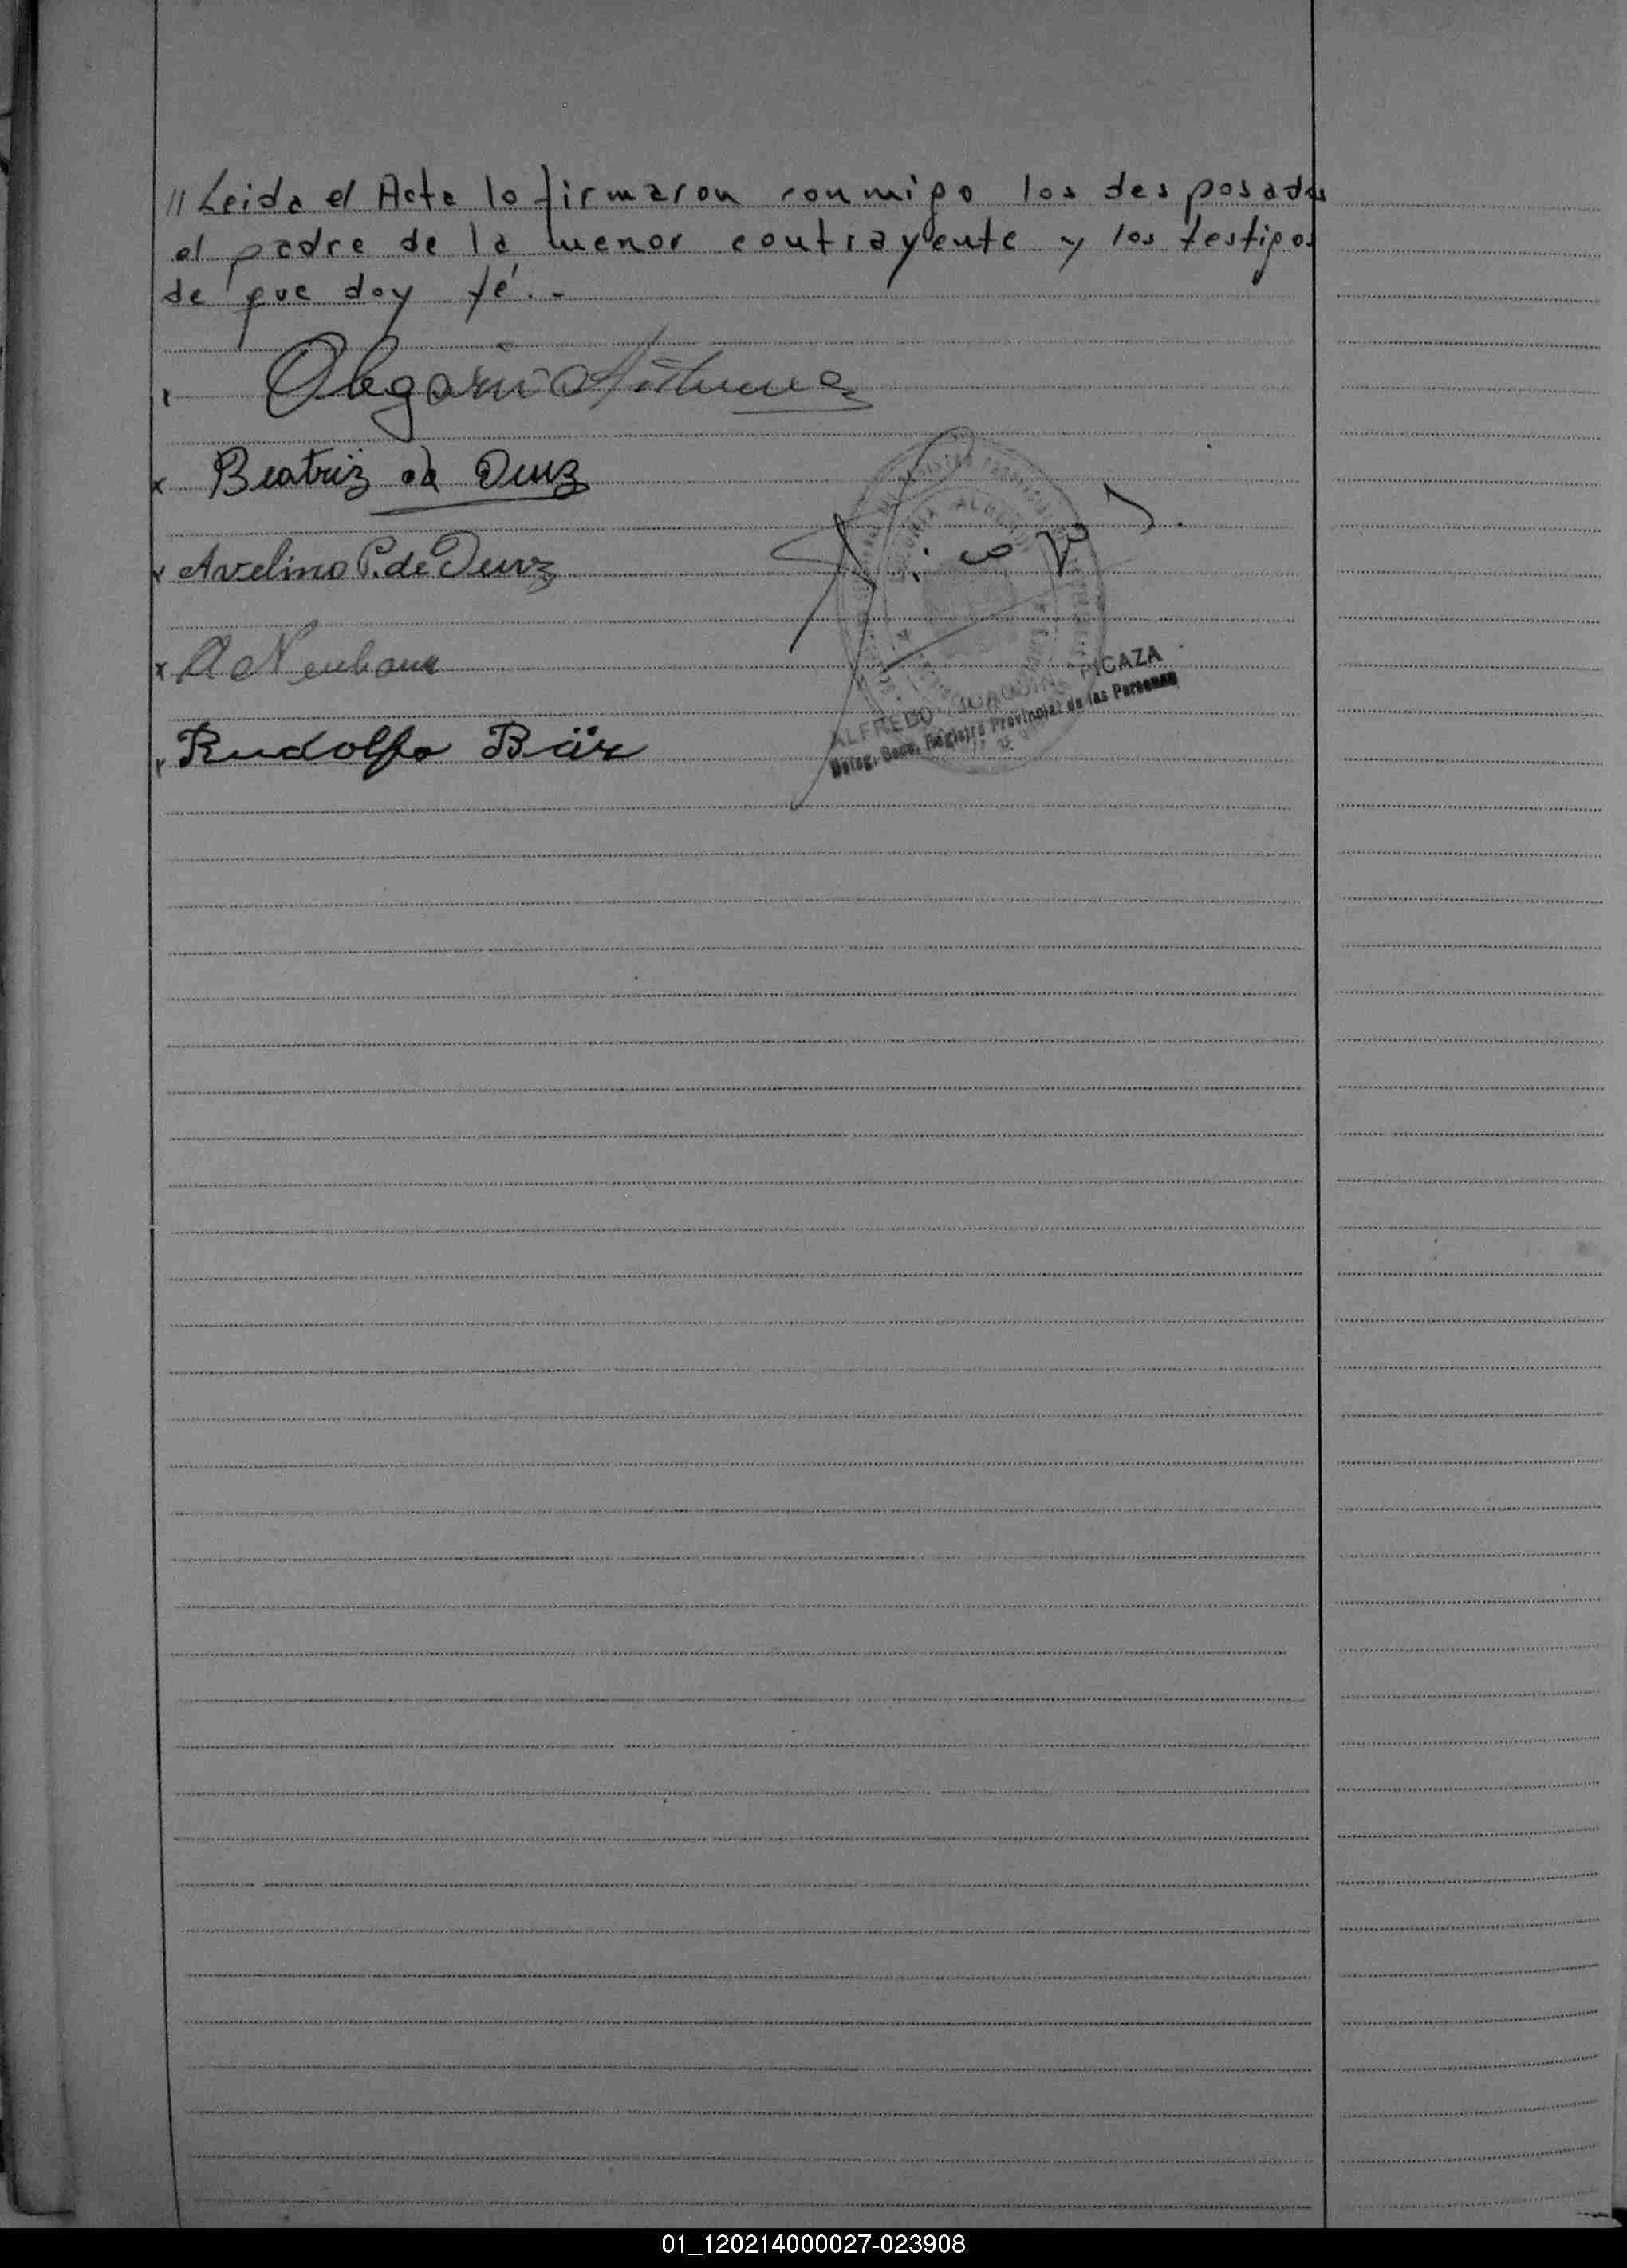 // Leida el Acta lo firmaron conmigo los desposados
el padre de la menor contrayente y los testigos
de que doy fé. -
Olegario Antunez
x Beatriz de Deus
x Avelino P. de Deuz
x A Neuhaus
Rudolfo Bär
ALFREDO JOAQUIN PICAZA
Deleg. Secc. Registro Provincial de las Personas
01_120214000027-023908